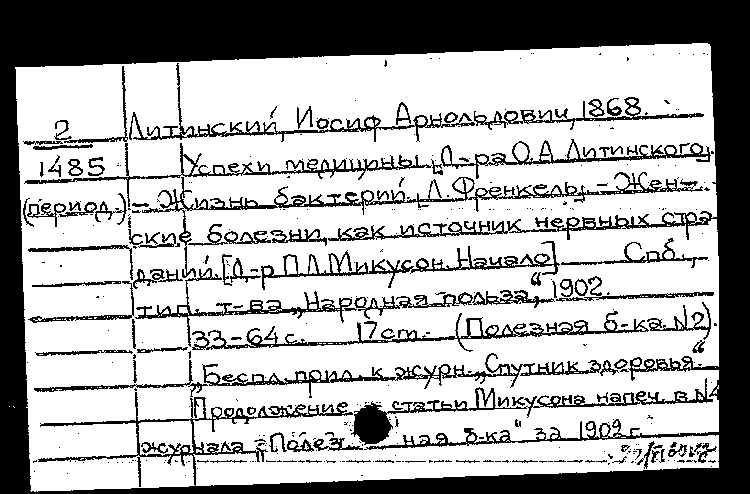 2 Литинский, Иосиф Арнольдович, 1868.
1485 Успехи медицины [Д-ра О.А. Литинского].
(период.) — Жизнь бактерий. [Л. Френкель]. — Жен-
ские болезни, как источник нервных стра-
даний. [Д-р П.Л. Микусон. Начало]. Спб.,
тип. т-ва „Народная польза“, 1902.
33-64 с. 17 cm. (Полезная б-ка. N2).
„Беспл. прил. к журн. „Спутник здоровья“.
Продолжение статьи Микусона напеч. в N4
журнала „Полезная б-ка“ за 1902 г.